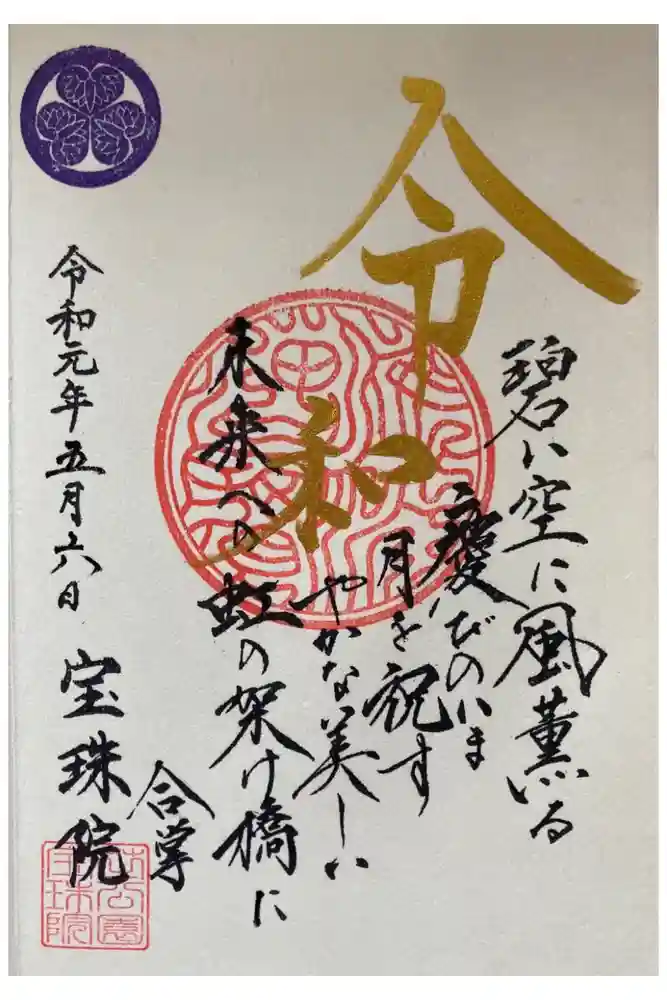 令和
碧い空に風薫る
慶びのいま
月を祝す
やかな美しい
未来への虹の架け橋に
合掌
令和元年五月六日 宝珠院
芝公園
宝珠院